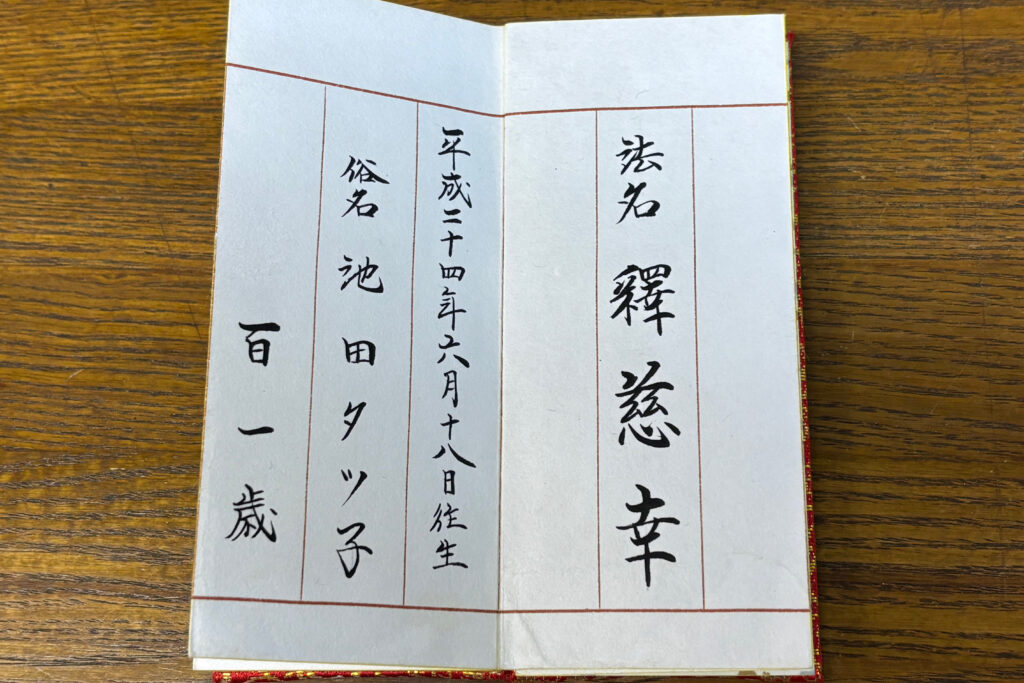 法名 釋慈幸
平成二十四年六月十八日往生
俗名 池田タツ子
百一歳